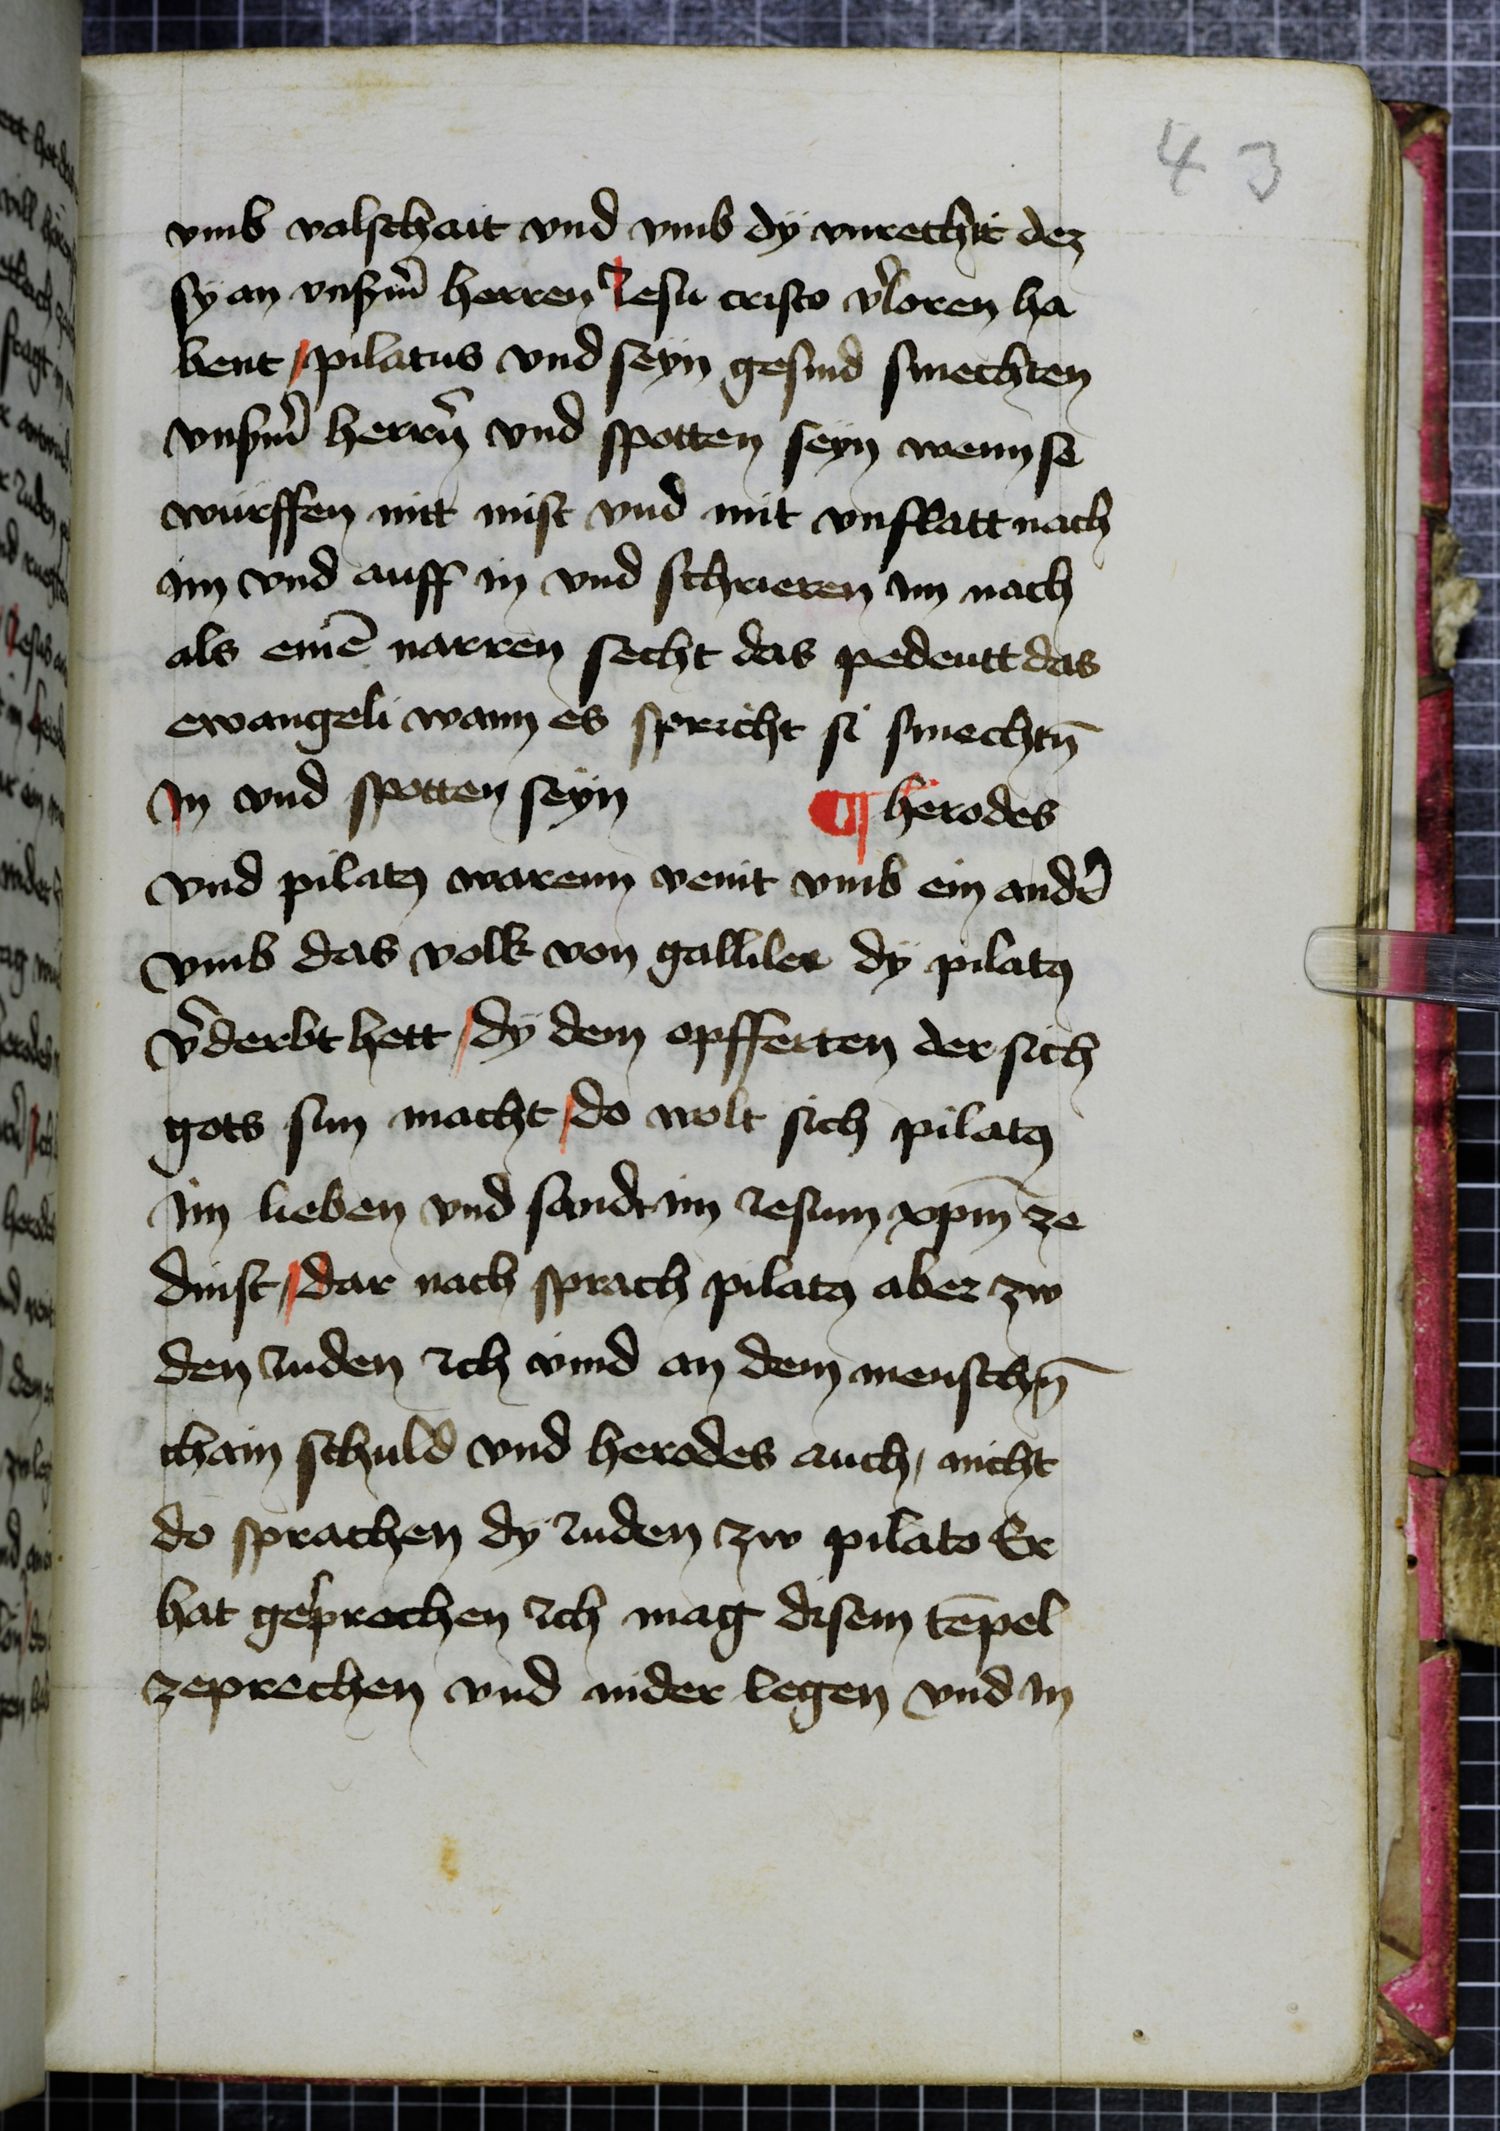 43
vmb valschait vnd vmb dÿ vnrecht dez
sy an vnserm̄ herren Jesu cristo v̉loren ha
bent / pilatus vnd seyn gesind smechten
vnserm̄ herrn̄ vnd spotten seyn wenn se
wurffen mit mist vnd mit vnflatt nach
im vnd auff in vnd schrieren im nach
als einē narren secht das pedeutt das
ewangeli wann es spricht si smechtn̄
in vnd spotten seyn ¶ herodes
vnd pilatꝰ warenn veint vmb ein andẻ
vmb das volk von gallilee dÿ pilatꝰ
v̉derbt hett / dÿ dem opfferten der sich
gots sun macht / do wolt sich pilatꝰ
im lieben vnd sandt im Jesum xpm̄ ze
dinst / dar nach sprach pilatꝰ aber zw
den Juden Ich vind an dem menschn̄
chain schuld vnd herodes auch / nicht
do sprachen dÿ Juden zw pilato Er
hat gesprochen Ich mag disem tēpel
zeprechen vnd nider legen vnd in